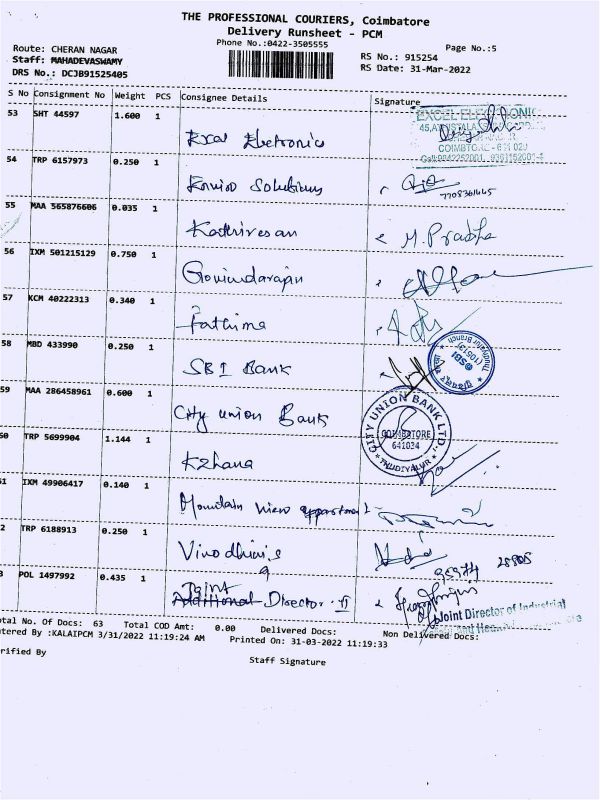 THE PROFESSIONAL COURIERS, Coimbatore
Delivery Runsheet - PCM
Phone No.:0422-3505555
Page No.:5
Route: CHERAN NAGAR
Staff: MAHADEVASWAMY
RS No.: 915254
DRS No.: DCJB91525405
RS Date: 31-Mar-2022
S No Consignment No Weight PCS Consignee Details Signature
53 SHT 44597 1.600 1
Excel Electronics
EXCEL ELECTRONIC
COIMBTORE - 641 029
54 TRP 6157973 0.250 1
Enviro Solutions
55 MAA 565876606 0.035 1
Kathiresan M. Prabha
56 IXM 501215129 0.750 1
Govindarajan
57 KCM 40222313 0.340 1
Fathima
58 MBD 433990 0.250 1
SBI Bank
SBI
59 MAA 286458961 0.600 1
City union Bank
CITY UNION BANK LTD.
COIMBATORE
641034
THUDIYALUR
60 TRP 5699904 1.144 1
61 IXM 49906417 0.140 1
Mountain view appartment
2 TRP 6188913 0.250 1
3 POL 1497992 0.435 1
Joint
Additional Director - II
Joint Director of Industrial
otal No. Of Docs: 63 Total COD Amt: 0.00 Delivered Docs: Non Delivered Docs:
ntered By :KALAIPCM 3/31/2022 11:19:24 AM Printed On: 31-03-2022 11:19:33
rified By
Staff Signature